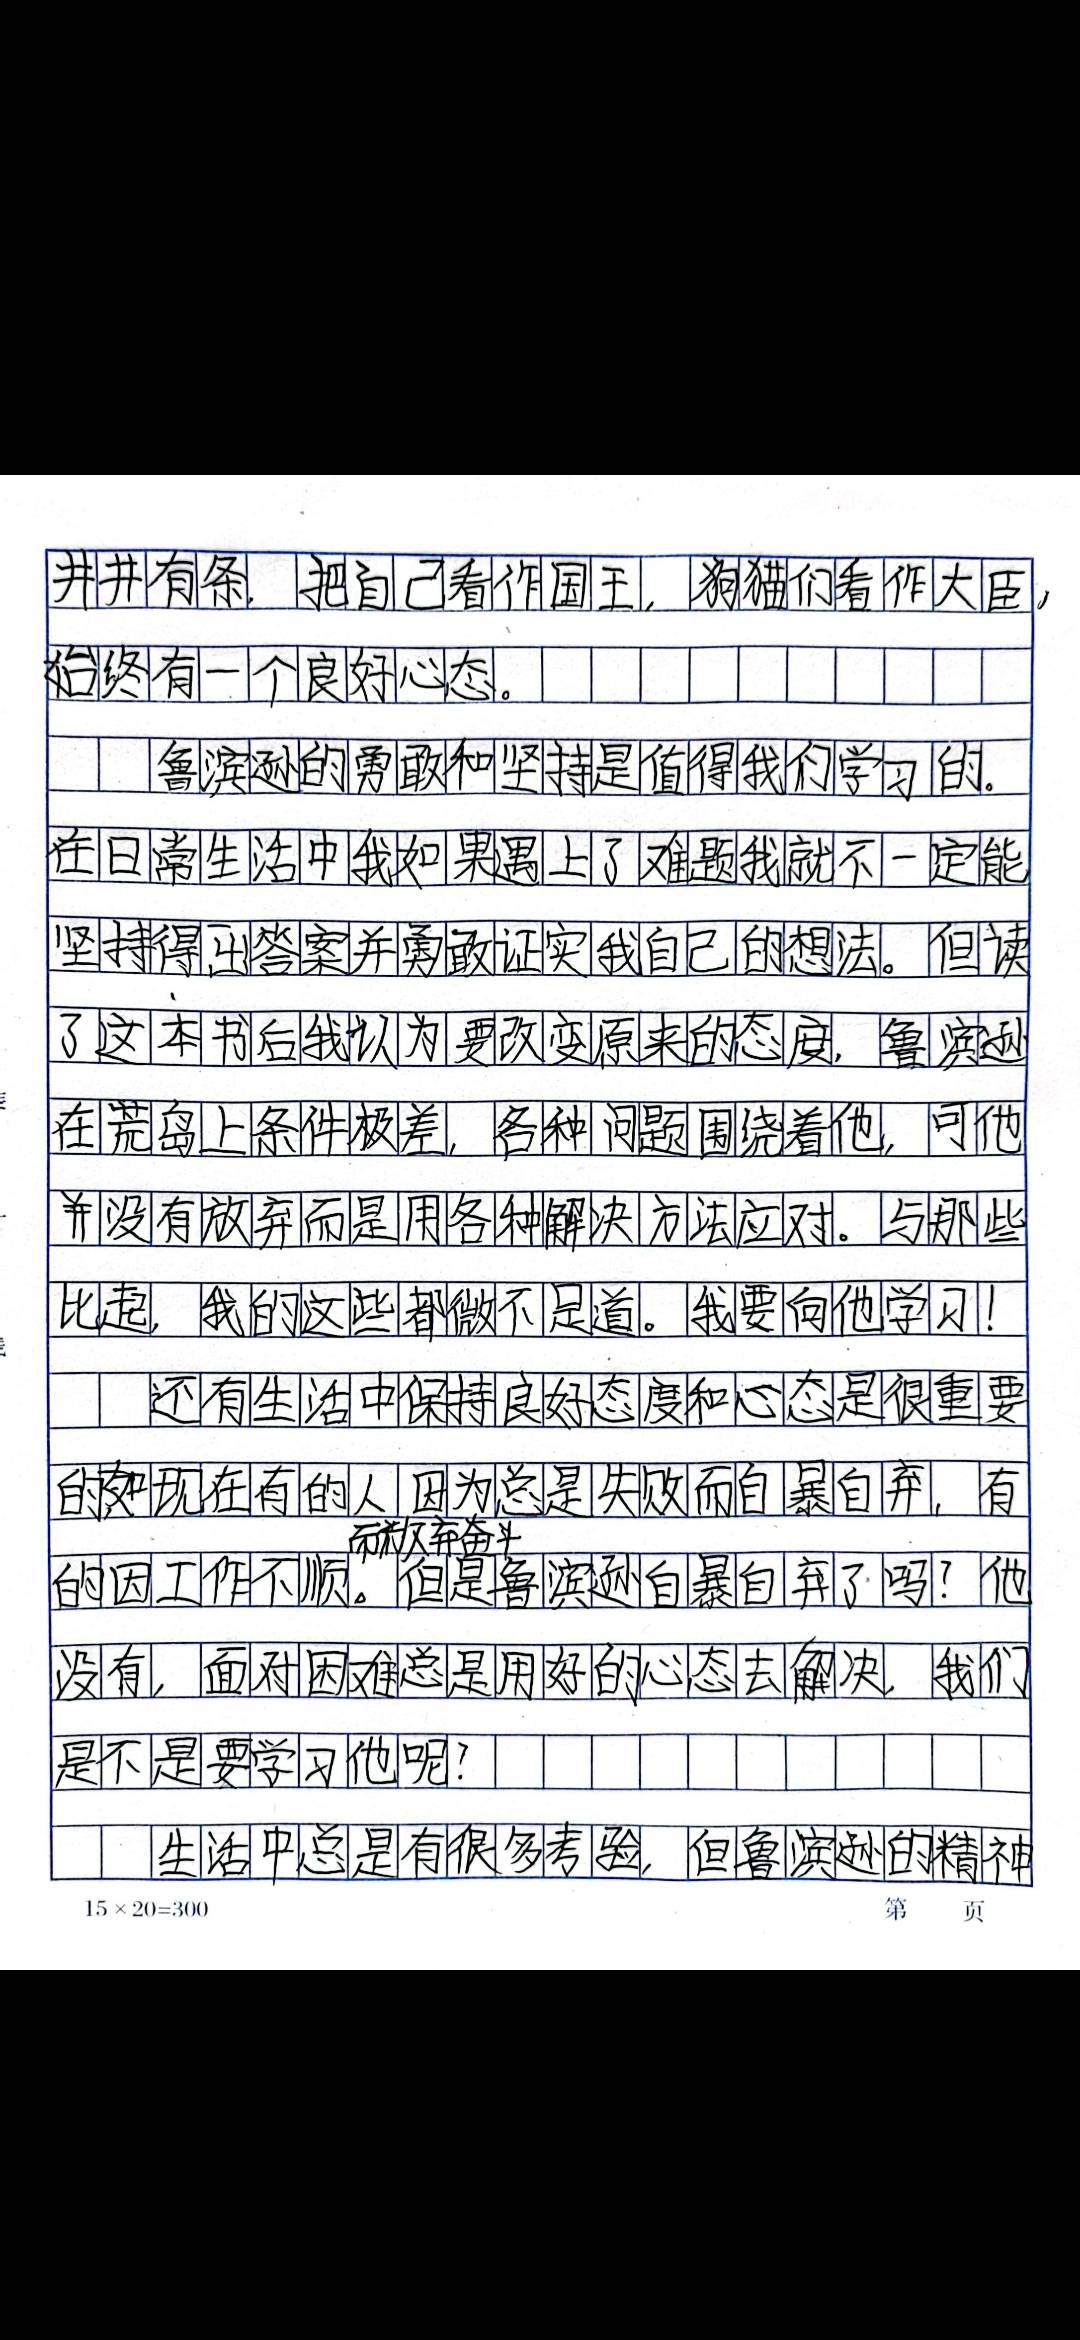 井井有条，把自己看作国王，狗猫们看作大臣，
始终有一个良好心态。
鲁滨逊的勇敢和坚持是值得我们学习的。
在日常生活中我如果遇上了难题我就不一定能
坚持得出答案并勇敢证实我自己的想法。但读
了这本书后我认为要改变原来的态度，鲁滨逊
在荒岛上条件极差，各种问题围绕着他，可他
并没有放弃而是用各种解决方法应对。与那些
比起，我的这些都微不足道。我要向他学习！
还有生活中保持良好态度和心态是很重要
的如现在有的人因为总是失败而自暴自弃，有
而放弃奋斗
的因工作不顺。但是鲁滨逊自暴自弃了吗？他
没有，面对困难总是用好的心态去解决，我们
是不是要学习他呢？
生活中总是有很多考验，但鲁滨逊的精神
15×20=300 第 页